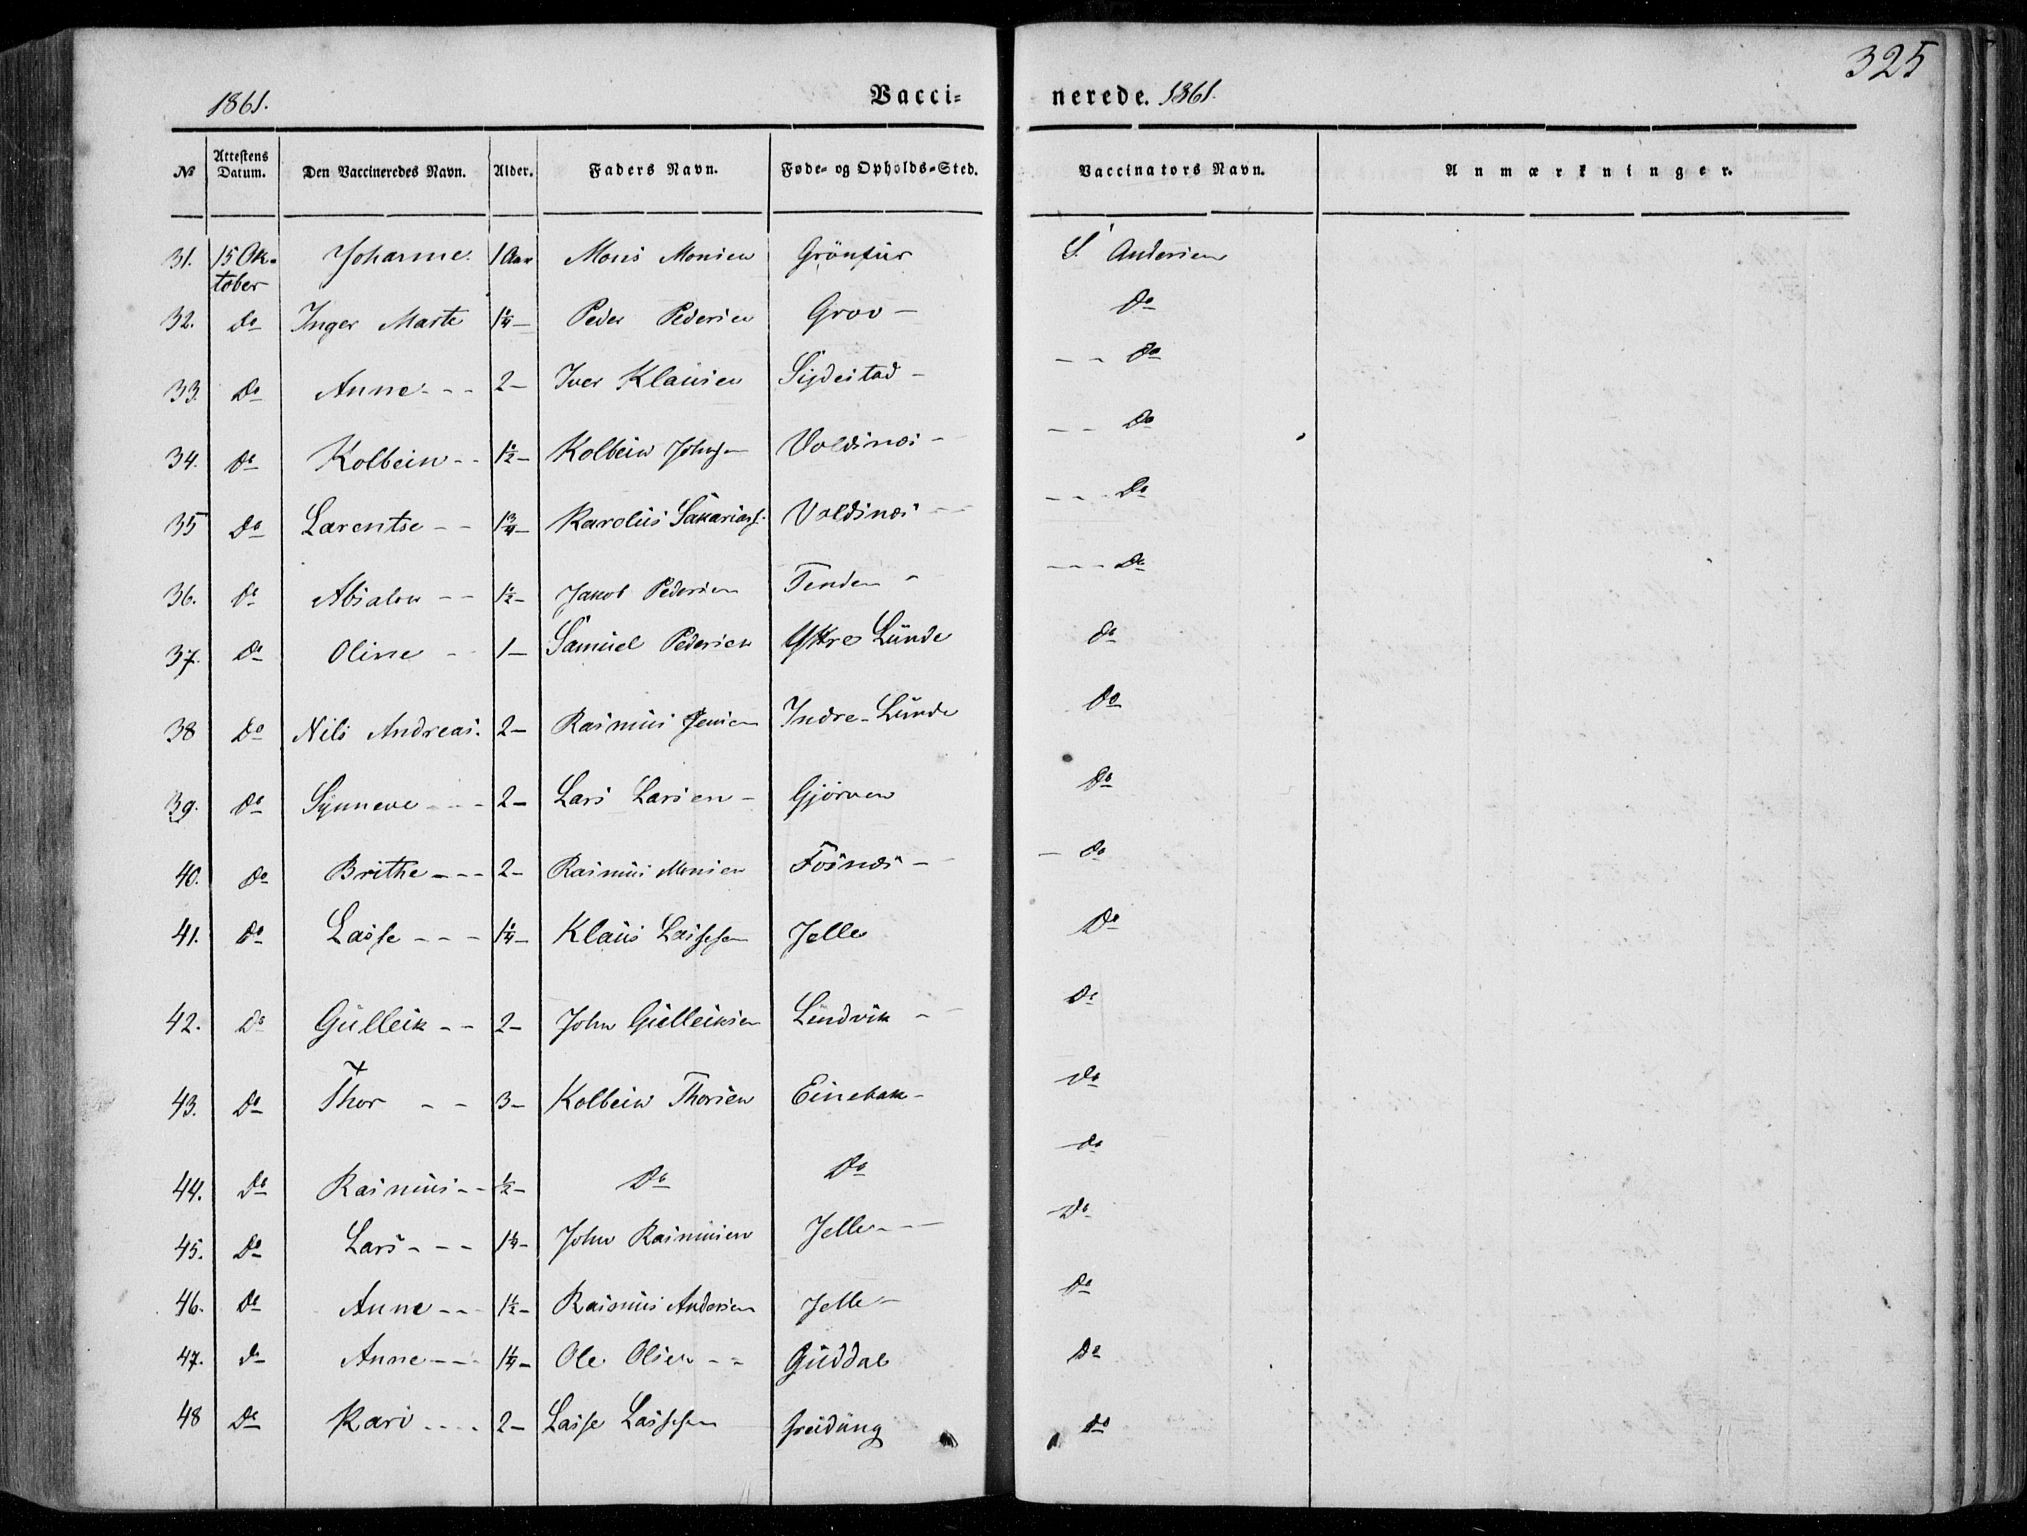 325
1861. Vacci= nerede. 1861.
No Attestens Datum. Den Vaccineredes Navn. Alder. Faders Navn. Føde- og Opholds-Sted. Vaccinators Navn. Anmærkninger.
31. 15 Ok- Johanne. 1 Aar Mons Monsen Grönfur S. Andersen
tober
32. Do Inger Marte 1¼ — Peder Pedersen Grov — Do
33. Do Anne - - - 2 — Iver Klausen Sigdestad - - - Do
34. Do Kolbein - - 1½ — Kolbein Johns Voldsnæs - - - Do
35 Do Larentse - - 1¾ — Karolus Sakarias. Voldsnæs - - - - Do
36. Do Absalon - - 1½ - Jakob Pedersen Tenden - - - - Do
37. Do Oline - 1 — Samuel Pedersen Ytre Lunde Do
38 Do Nils Andreas. 2 — Rasmus Jensen Indre-Lunde Do
39. Do Synneve - - - 2 — Lars Larsen - Gjörven Do
40. Do Brithe - - - 2 - Rasmus Monsen Fosnæs - - Do
41. Do Lasse - - - 1¼ — Klaus Lassesen Jelle Do
42. Do Gulleik - - 2 - John Gulleiksen Lundvik - - Do
43. Do Thor - - 3 - Kolbein Thorsen Einebak - Do
44. Do Rasmus - - ½ - Do Do Do
45. Do Lars - - - 1¼ - John Rasmusen Jelle - - - Do
46. Do Anne - - 1½ - Rasmus Andersen Jelle - Do
47. Do Anne - - - 1¼ - Ole Olsen - - Guddal Do
48 Do Kari - - - - 2 - Lasse Lassesen Do